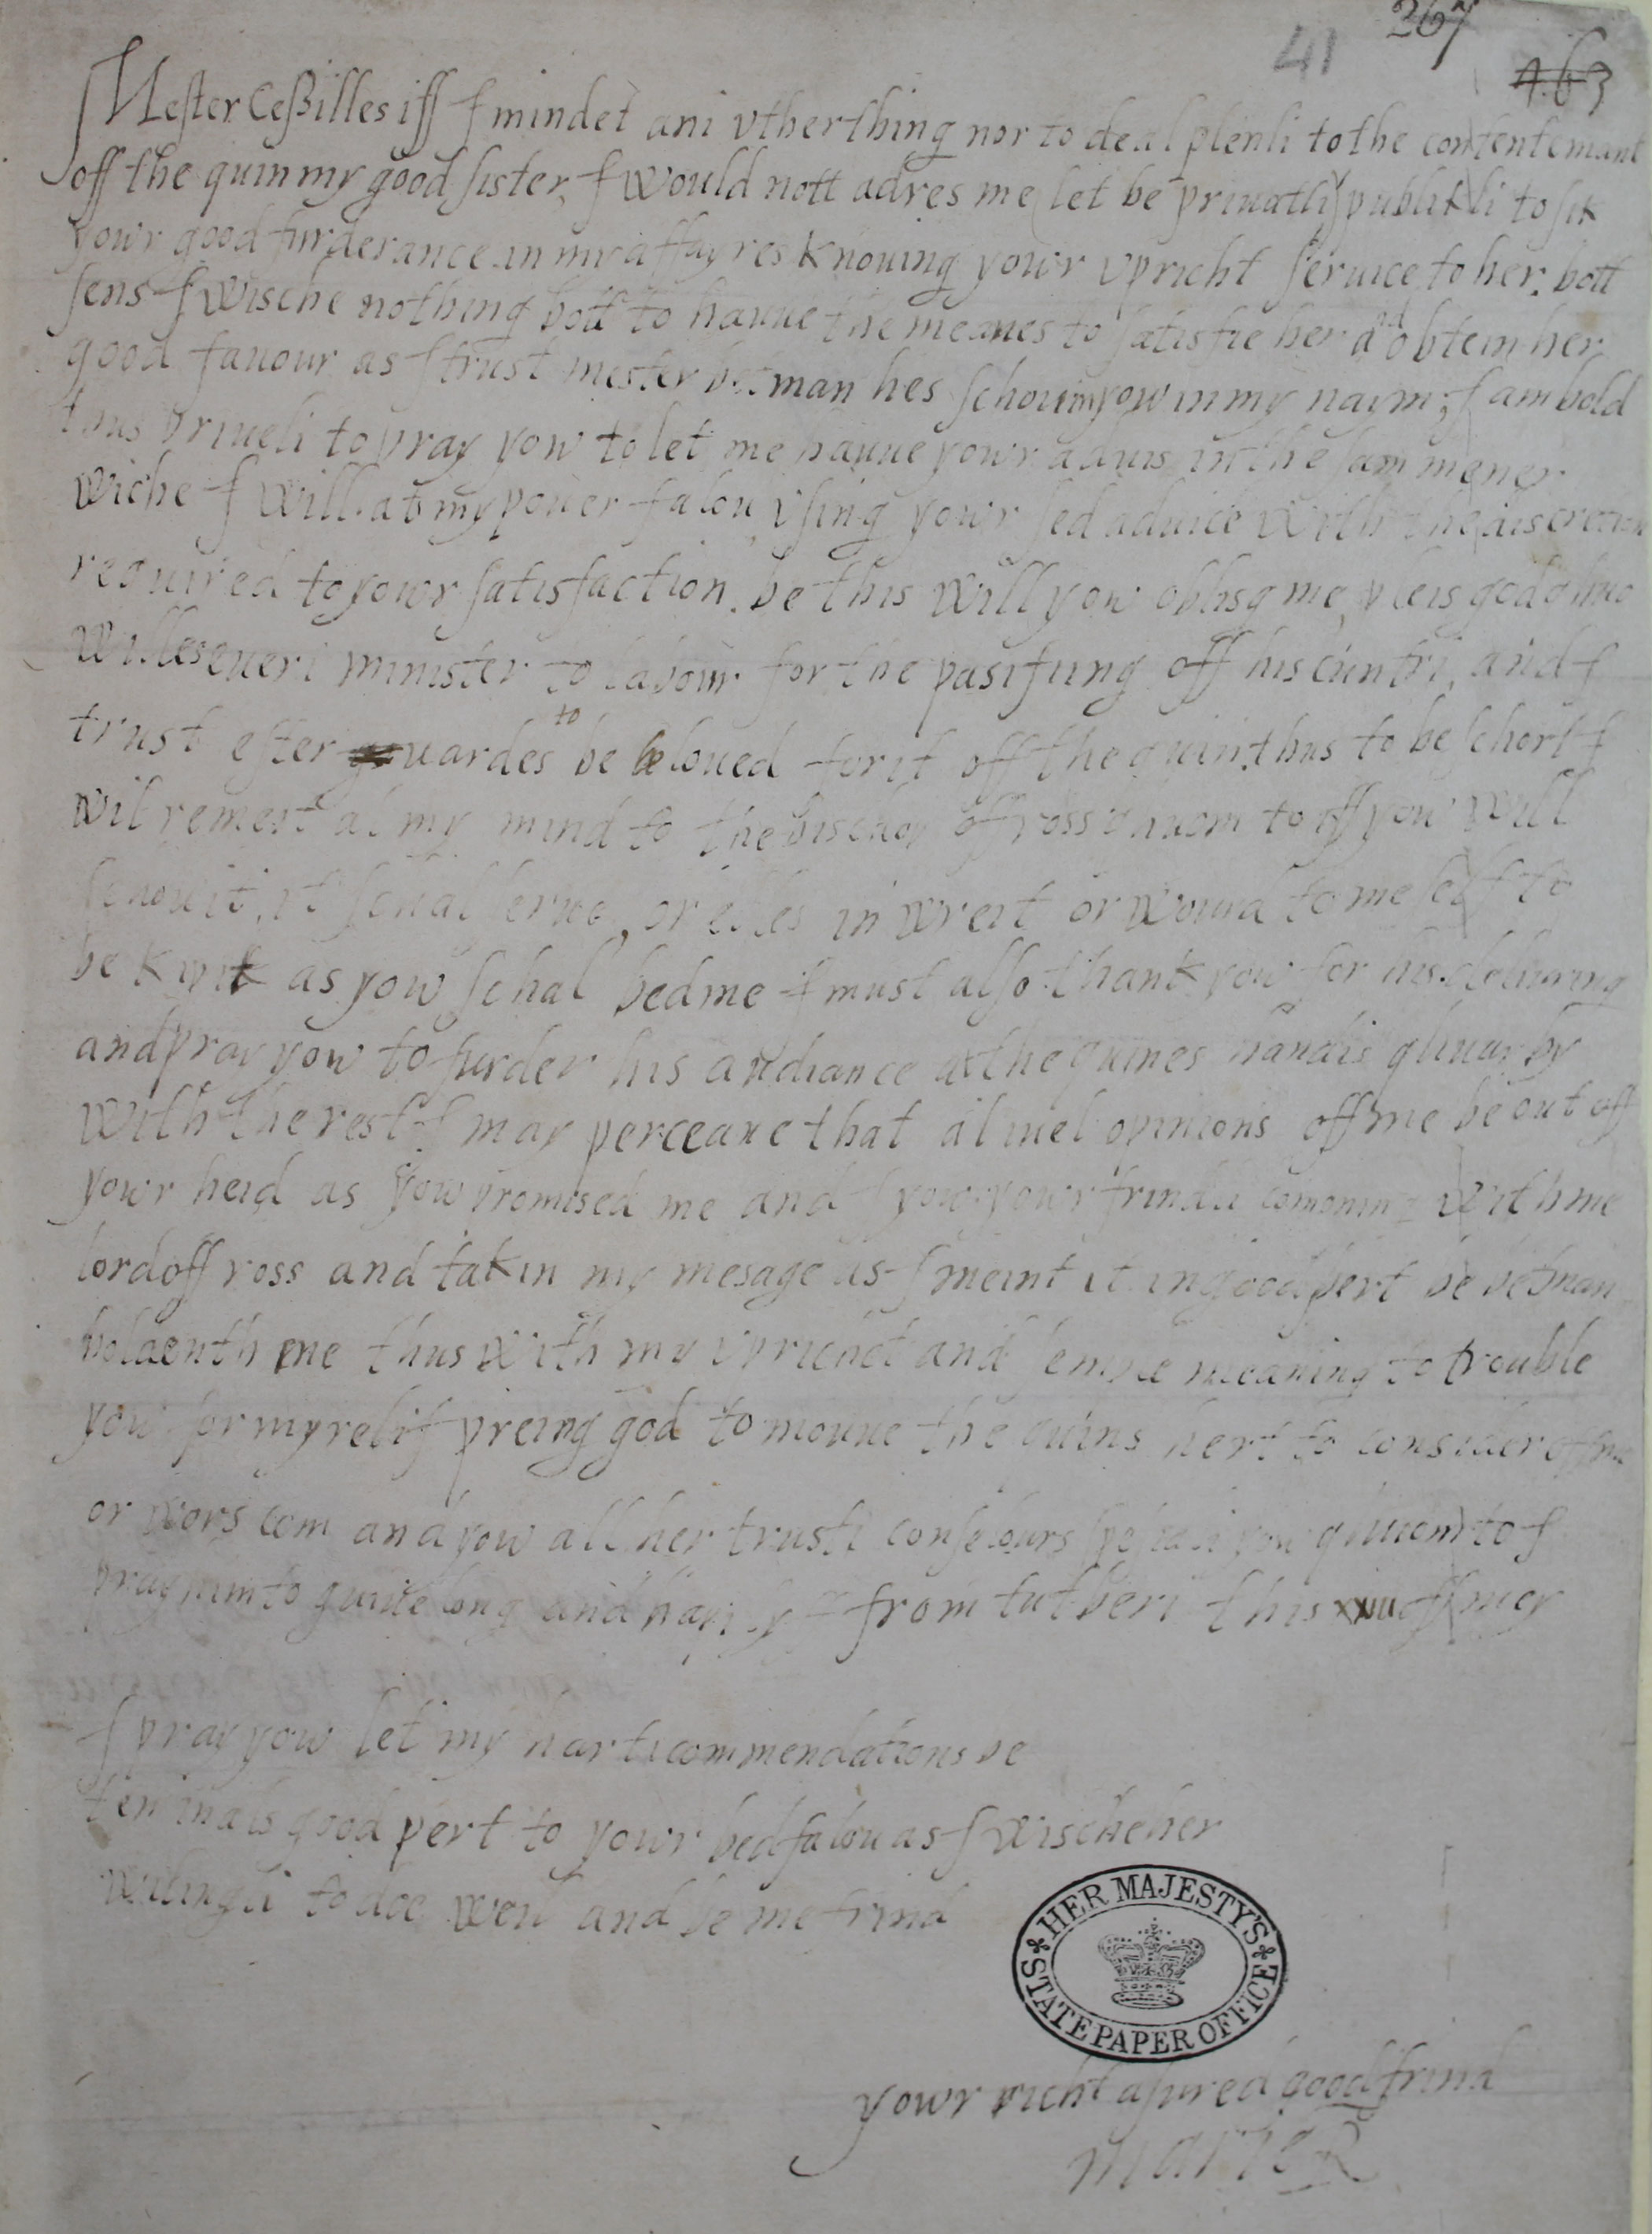 41 267
463
Mester Ceßilles iff I mindet ani vtherthing nor to deal plenli to the contentemant
off the quin my good sister, I would nott adres me let be privatli publikli to sik
yowr good furderance in my affayres knouing yowr vpricht seruice to her. bott
sens I wische nothing bott to hauue the meanes to satisfie her and obtein her
good fauour as I trust mester betman hes schouin yow in my naym, I am bold
thus priueli to pray yow to let me hauue yowr aduis in the sam mener
wiche I will at my pouer falou vsing yowr sed aduice with the discretion
required to yowr satisfaction. be this will yow oblisg me, pleis god quho
willes eueri minister to labour for the pasifiing off his cuntri, and I
trust efter uardes to be beloued for it off the quin. thus to be schort I
wil remeit al my mind to the bischop off ross quhom to iff yow will
schou it, it schal serue, or elles in wreit or wourd to me self to
be kwit as yow schal bed me I must also thank yow for his deliuring
and pray yow to furder his audiance at the quines handis quhuarby
with the rest I may perceaue that al iuel opinions off me be out off
yowr heid as yow promised me and I yow. yowr frindli comoning with me
lord off ross and takin my mesage as I meint it in good pert be betman
boldenth me thus with my vpricht and semple meaning to trouble
yow for my relif preing god to mouue the quins hert to consider off me
or wors com and yow all her trusti conselours spesiali yow quhom to I
pray him to guiue long and hapi lyf from tutberi this off mey
I pray yow let my harti commendations be
ten in als good pert to yowr bedfalou as I wische her
wilingli to doe weil and be me frind
HER MAJESTY'S
STATE PAPER OFFICE
yowr richt asured good frind
Marie R